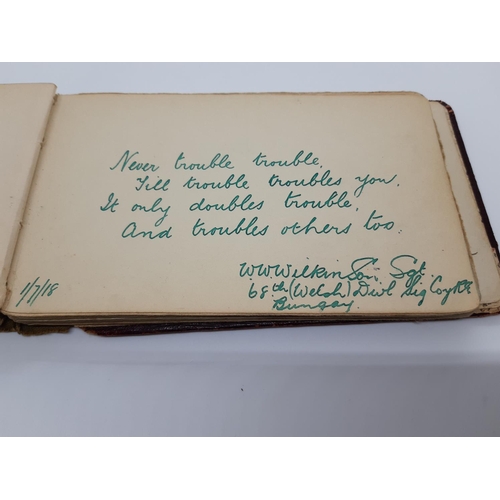 Never trouble trouble,
Till trouble troubles you,
It only doubles trouble,
And troubles others too.
W.W.Wilkinson. Sgt.
68th (Welsh) Divl Sig Coy RE
Bungay.
1/7/18